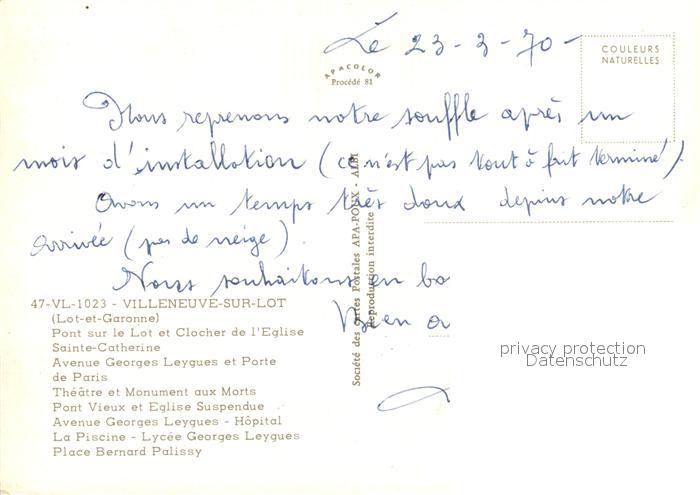 Le 23-3-70-
COULEURS
NATURELLES
APACOLOR
Procédé 81
Nous reprenons notre souffle après un
mois d'installation (ce n'est pas tout à fait terminé).
Avons un temps très doux depuis notre
arrivée (pas de neige).
Nous souhaitons en bo
Bien a
Société des Cartes Postales APA-POUX - ALBI
Reproduction interdite
47-VL-1023 - VILLENEUVE-SUR-LOT
(Lot-et-Garonne)
Pont sur le Lot et Clocher de l'Eglise
Sainte-Catherine
Avenue Georges Leygues et Porte
de Paris
Théâtre et Monument aux Morts
Pont Vieux et Eglise Suspendue
Avenue Georges Leygues - Hôpital
La Piscine - Lycée Georges Leygues
Place Bernard Palissy
privacy protection
Datenschutz